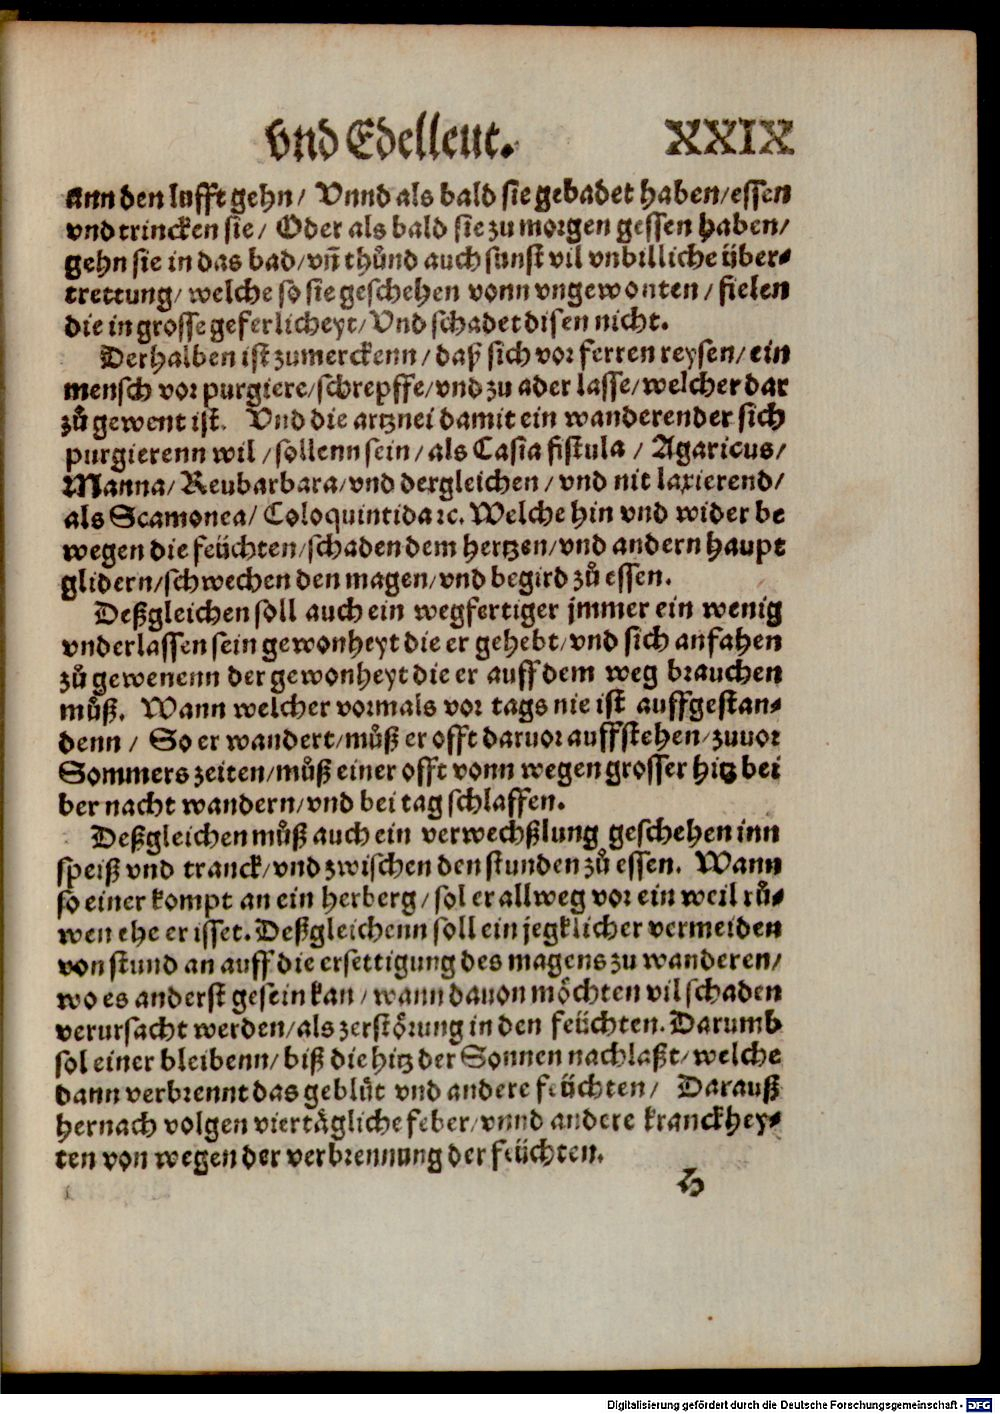 vnd Edelleut. XXIX
ann den lufft gehn/ Vnnd als bald sie gebadet haben/essen
vnd trincken sie/ Oder als bald sie zu morgen gessen haben/
gehn sie in das bad/vn̄ thůnd auch sunst vil vnbilliche über-
trettung/welche so sie geschehen vonn vngewonten/ fielen
die in grosse geferlicheyt/Vnd schadet disen nicht.
Derhalben ist zumerckenn/daß sich vor ferren reysen/ein
mensch vor purgiere/schrepffe/vnd zu ader lasse/welcher dar
zů gewent ist. Vnd die artznei damit ein wanderender sich
purgierenn wil/sollenn sein/als Casia fistula/ Agaricus/
Manna/Reubarbara/vnd dergleichen/vnd nit laxierend/
als Scamonea/ Coloquintida ꝛc. Welche hin vnd wider be
wegen die feüchten/schaden dem hertzen/vnd andern haupt
glidern/schwechen den magen/vnd begird zů essen.
Deßgleichen soll auch ein wegfertiger jmmer ein wenig
vnderlassen sein gewonheyt die er gehebt/vnd sich anfahen
zů gewenenn der gewonheyt die er auff dem weg brauchen
můß. Wann welcher vormals vor tags nie ist auffgestan-
denn/ So er wandert/můß er offt daruor auffstehen/zuuor
Sommers zeiten/můß einer offt vonn wegen grosser hitz bei
ber nacht wandern/vnd bei tag schlaffen.
Deßgleichen můß auch ein verwechßlung geschehen inn
speiß vnd tranck/vnd zwischen den stunden zů essen. Wann
so einer kompt an ein herberg/sol er allweg vor ein weil rů-
wen ehe er isset. Deßgleichenn soll ein jegklicher vermeiden
von stund an auff die ersettigung des magens zu wanderen/
wo es anderst gesein kan/wann dauon möchten vil schaden
verursacht werden/als zerstörung in den feüchten. Darumb
sol einer bleibenn/biß die hitz der Sonnen nachlaßt/welche
dann verbrennt das geblüt vnd andere feüchten/ Darauß
hernach volgen viertägliche feber/vnnd andere kranckhey-
ten von wegen der verbrennung der feüchten.
H
Digitalisierung gefördert durch die Deutsche Forschungsgemeinschaft - DFG